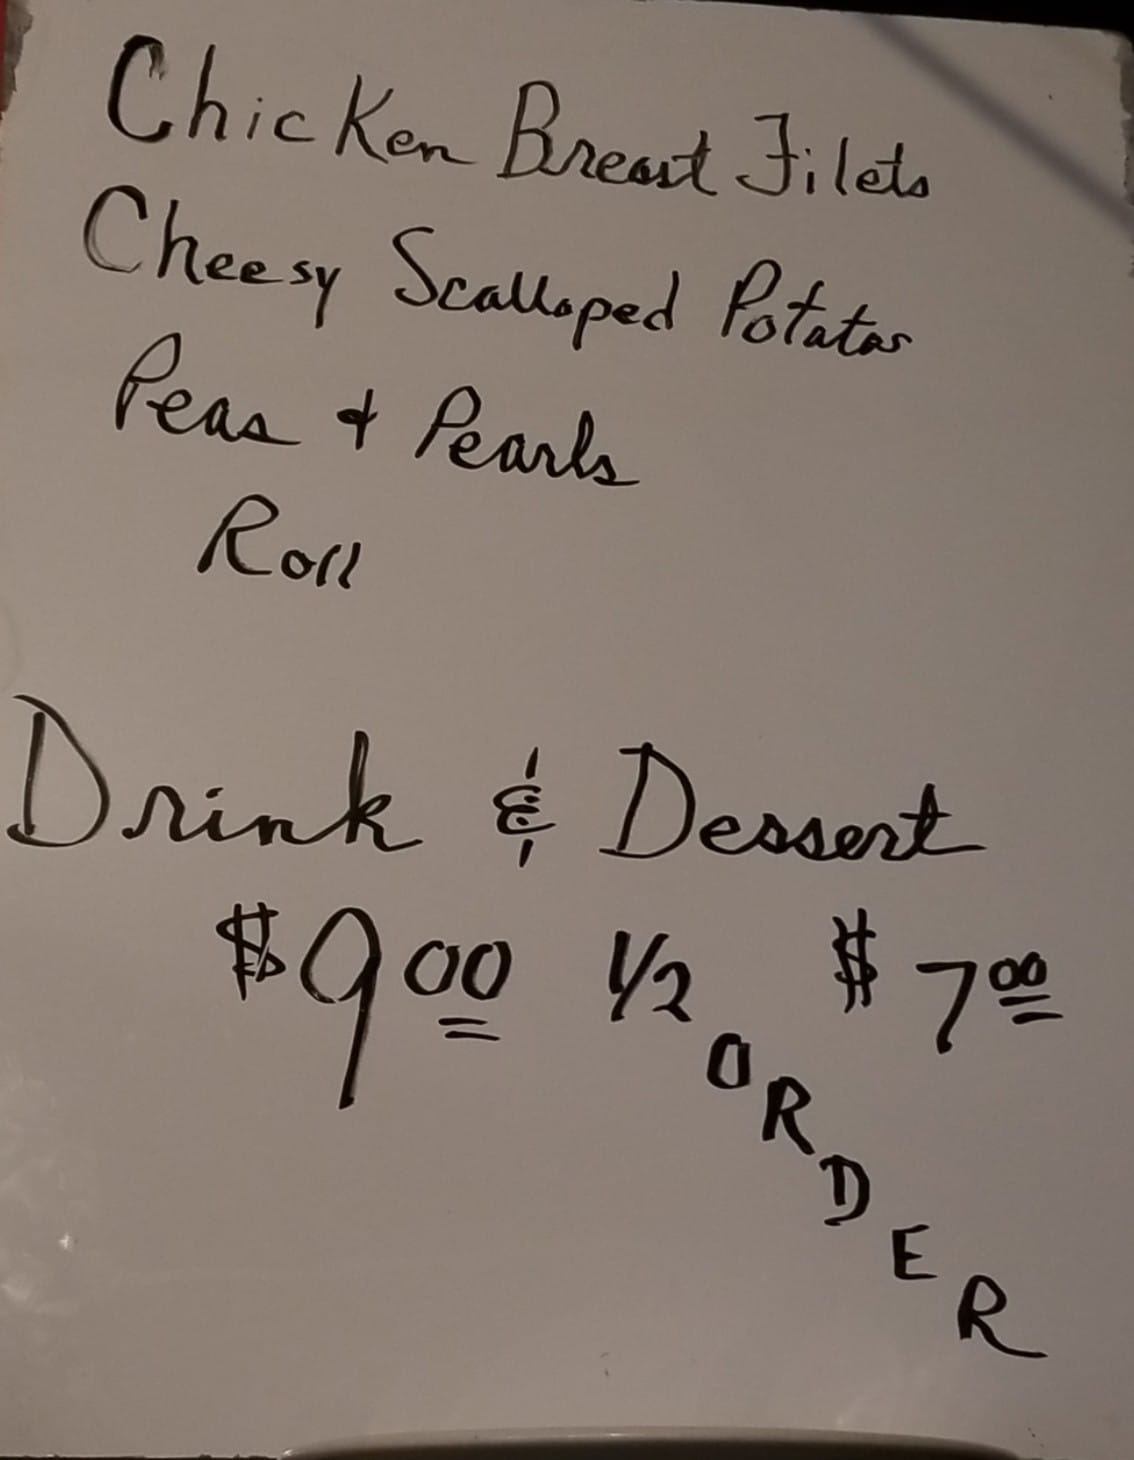 Chicken Breast Filets
Cheesy Scalloped Potatos
Peas & Pearls
Roll
Drink & Dessert
$9.00 1/2 ORDER $7.00